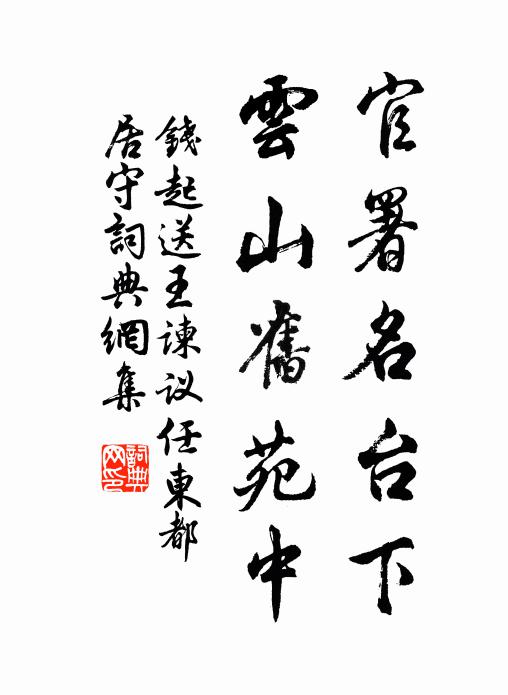 官署名台下
雲山舊苑中
錢起送王諫议任東都
居守詞典網集
詞典網印